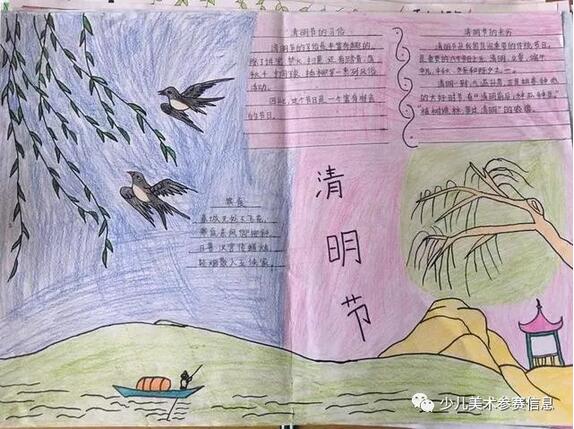 清明节的习俗
清明节的习俗是丰富有趣的,
除了讲究禁火、扫墓,还有踏青、荡
秋千、打马球、插柳等一系列风俗
活动。
因此,这个节日是一个富有特色
的节日。
清明节的来历
清明节是我国
清明一到,气温升高,
的大好时节,有"清明前后,种瓜种豆"
"植树造林,莫过清明"的农谚。
寒食
春城无处不飞花,
寒食东风御柳斜。
日暮汉宫传蜡烛,
轻烟散入五侯家。
清明节
少儿美术参赛信息